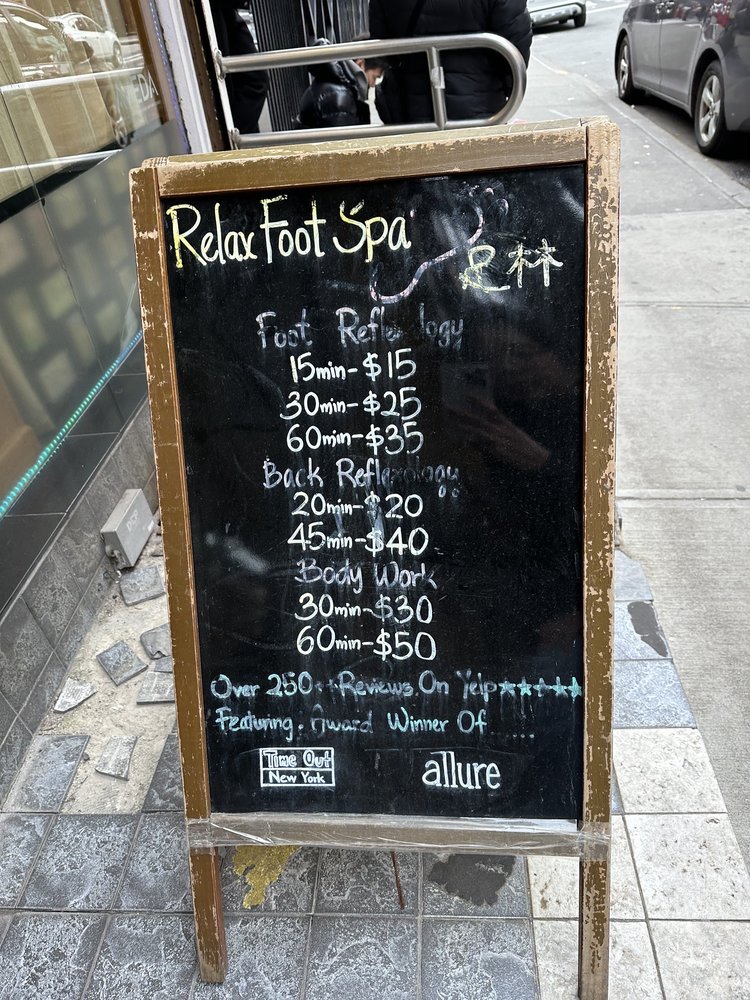 Relax Foot Spa
足林
Foot Reflexology
15min-$15
30min-$25
60min-$35
Back Reflexology
20min-$20
45min-$40
Body Work
30min-$30
60min-$50
Over 250++ Reviews On Yelp ★★★★★
Featuring. Award Winner Of ......
Time Out
New York
allure